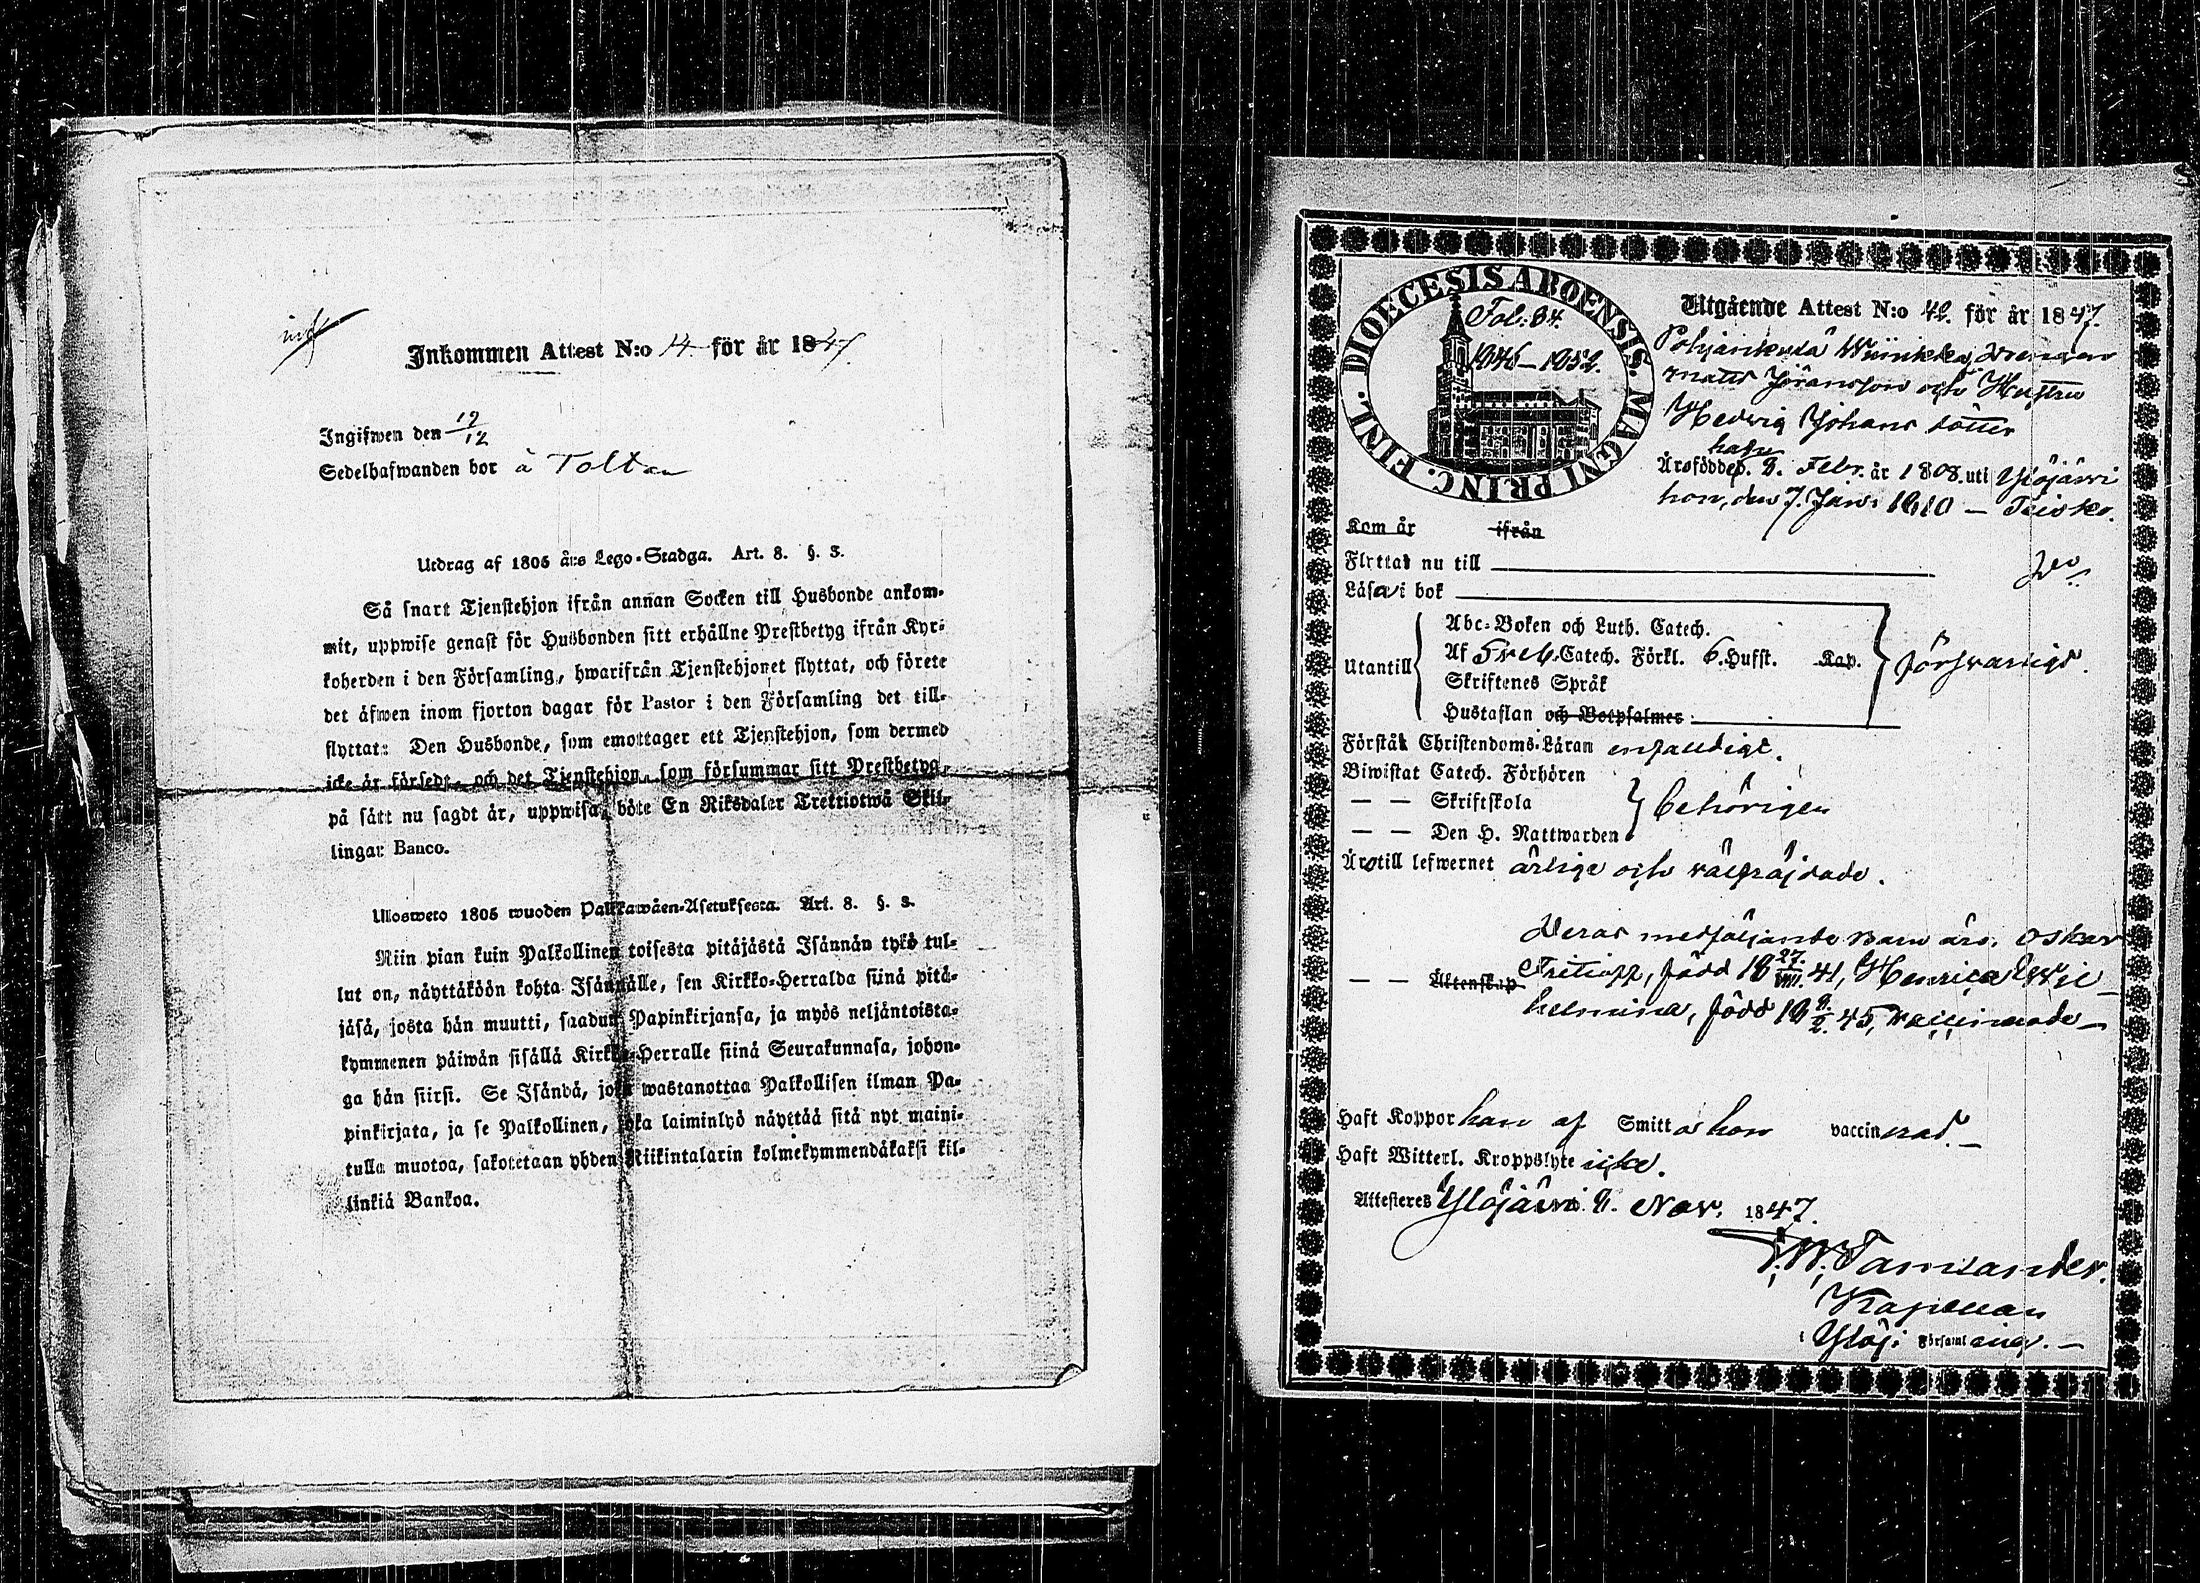 Inkommen Attest N:o 14. för år 1847.
Ingifwen den 19/12
Sedelhafwanden bor å Tolttan
Utdrag af 1805 års Lego-Stadga. Art. 8. §. 3.
Så snart Tjenstehjon ifrån annan Socken till Husbonde ankom-
mit, uppwise genast för Husbonden sitt erhållne Prestbetyg ifrån Kyr-
koherden i den Församling, hwarifrån Tjenstehjonet flyttat, och förete
det äfwen inom fjorton dagar för Pastor i den Församling det till-
flyttat: Den Husbonde, som emottager ett Tjenstehjon, som dermed
icke är försedt, och det Tjenstehjon, som försummar sitt Prestbetyg,
på sätt nu sagdt är, uppwisa, böte En Riksdaler Trettiotwå Skil-
lingar Banco.
Ulosweto 1805 wuoden Palkkawäen-Asetuksesta. Art. 8. §. 3.
Niin pian kuin Palkollinen toisesta pitäjästä Isännän tykö tul-
lut on, näyttäköön kohta Isännälle, sen Kirkko-Herralda siinä pitä-
jäsä, josta hän muutti, saadun Papinkirjansa, ja myös neljäntoista-
kymmenen päiwän sisällä Kirkko-Herralle siinä Seurakunnasa, johon-
ga hän siirsi. Se Isändä, joka wastanottaa Palkollisen ilman Pa-
pinkirjata, ja se Palkollinen, joka laiminlyö näyttää sitä nyt maini-
tulla muotoa, sakotetaan yhden Riikintalarin kolmekymmendäkaksi kil-
linkiä Bankoa.
DIOECESIS ABOENSIS. MAGNI PRINC. FINL.
Fol: 84.
1846–1852.
Utgående Attest N:o 42. för år 1847.
Pohjankylä Drängen
Matts Jöransson och Hustru
Hedvig Johans dotter
han
Äro född den 9. Febr. år 1808. uti Ylöjärvi
hon, den 7. Jan: 1810 – Teisko.
Kom år ifrån
Flyttat nu till
Läsa i bok
Utantill
Abc-Boken och Luth. Catech.
Af Sveb. Catech. Förkl. 6. Hufst. Kap.
Skriftenes Språk
Hustaflan och Botpsalmer
försvarligt.
Förstå Christendoms-Läran enfaldigt.
Biwistat Catech. Förhören
— — Skriftskola
— — Den H. Nattwarden
behörigen
Äro till lefwernet ärlige och välfräjdade.
Deras medföljande Barn äro, Oskar
— — Äktenskap Fritioff, född 18 27/VIII. 41, Henrica Wil-
helmina, född 18 9/2. 45, vaccinerade –
Haft Koppor han af Smitto hon vaccinerad. –
Haft Witterl. Kroppslyte icke.
Attesteres Ylöjärvi 9. Nov. 1847.
Kapellan
i Ylöj: Församling. –